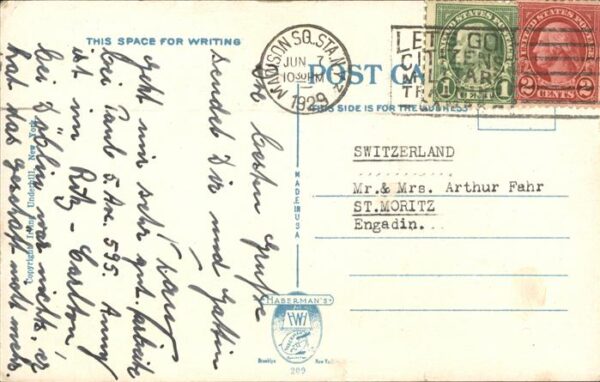 THIS SPACE FOR WRITING
Die besten Grüsse
sendet Dir und Gattin
geht mir sehr gut. arbeite
bei 5. Av. 595. Anny
ist im Ritz-Carlton
bei war nichts, er
hat das geschäft nicht mehr.
Copyright Irving Underhill, New York
MADISON SQ. STA. N.Y.
JUN 7
1030 PM
1929
LET'S GO
CITIZENS
MILITARY
UNITED STATES POSTAGE
1 CENT 1
UNITED STATES POSTAGE
2 CENTS 2
POST
THIS SIDE IS FOR THE ADDRESS
MADE IN USA
SWITZERLAND
Mr.& Mrs. Arthur Fahr
ST.MORITZ
Engadin.
HABERMAN'S
Brooklyn New York
209